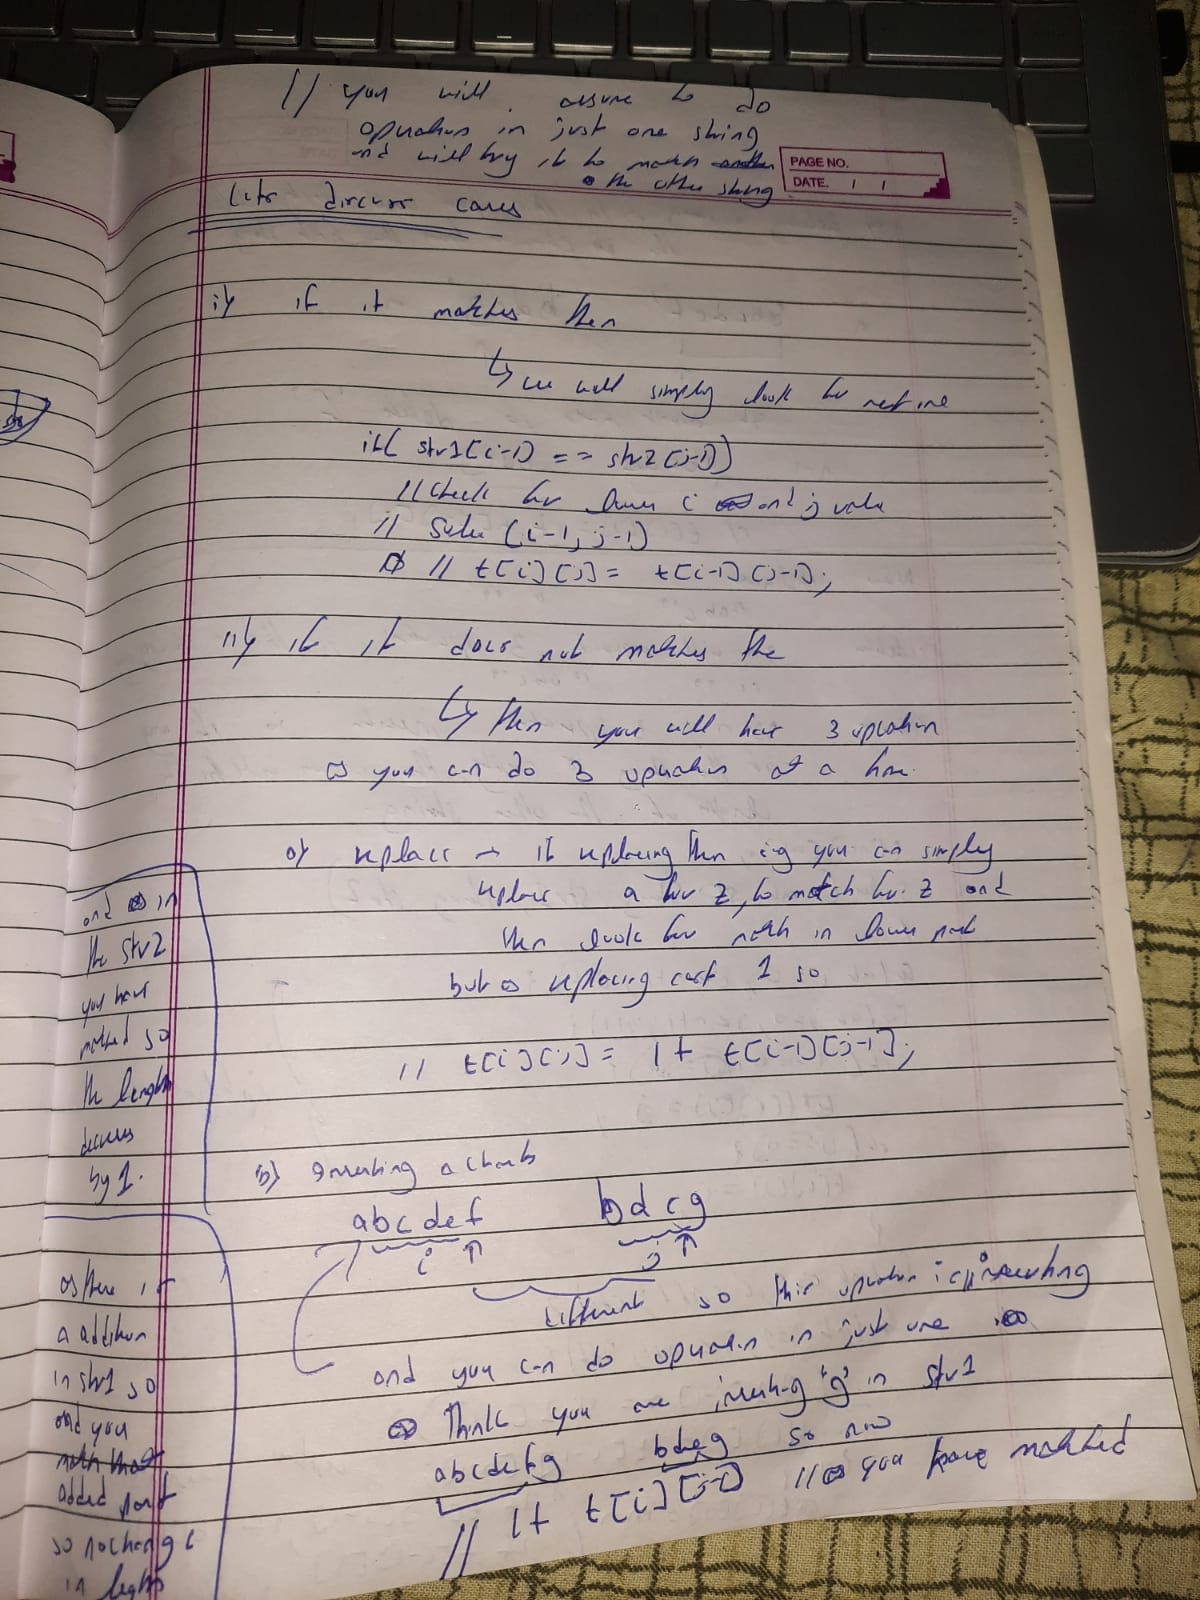 // you will assume to do
operation in just one string
and will try it to match
the other string
PAGE NO.
DATE. / /
Lets discuss cases
i) if it matches then
↳ we will simply look for
if( str1[i-1] == str2[j-1])
// Check for lower i and j value
// Solve (i-1, j-1)
// t[i][j] = t[i-1][j-1];
ii) if it does not matches the
↳ then you will have 3 operation
you can do 3 operation at a
a) replace → if replacing then eg you can simply
replace a for z, to match for z and
then look for match in lower part
but as replacing cost 1 so
// t[i][j] = 1+ t[i-1][j-1];
b) Inserting a
abcdef bdcg
i ↑ j ↑
different so this operation is inserting
and you can do operation in just one
Think you are inserting 'g' in str1
abcdefg bdcg so now
// 1+ t[i][j-1] // you have matched
and in
the str2
you have
matched so
the length
decreases
by 1.
as there is
a addition
in str1 so
and you
match that
added part
so no change
in length